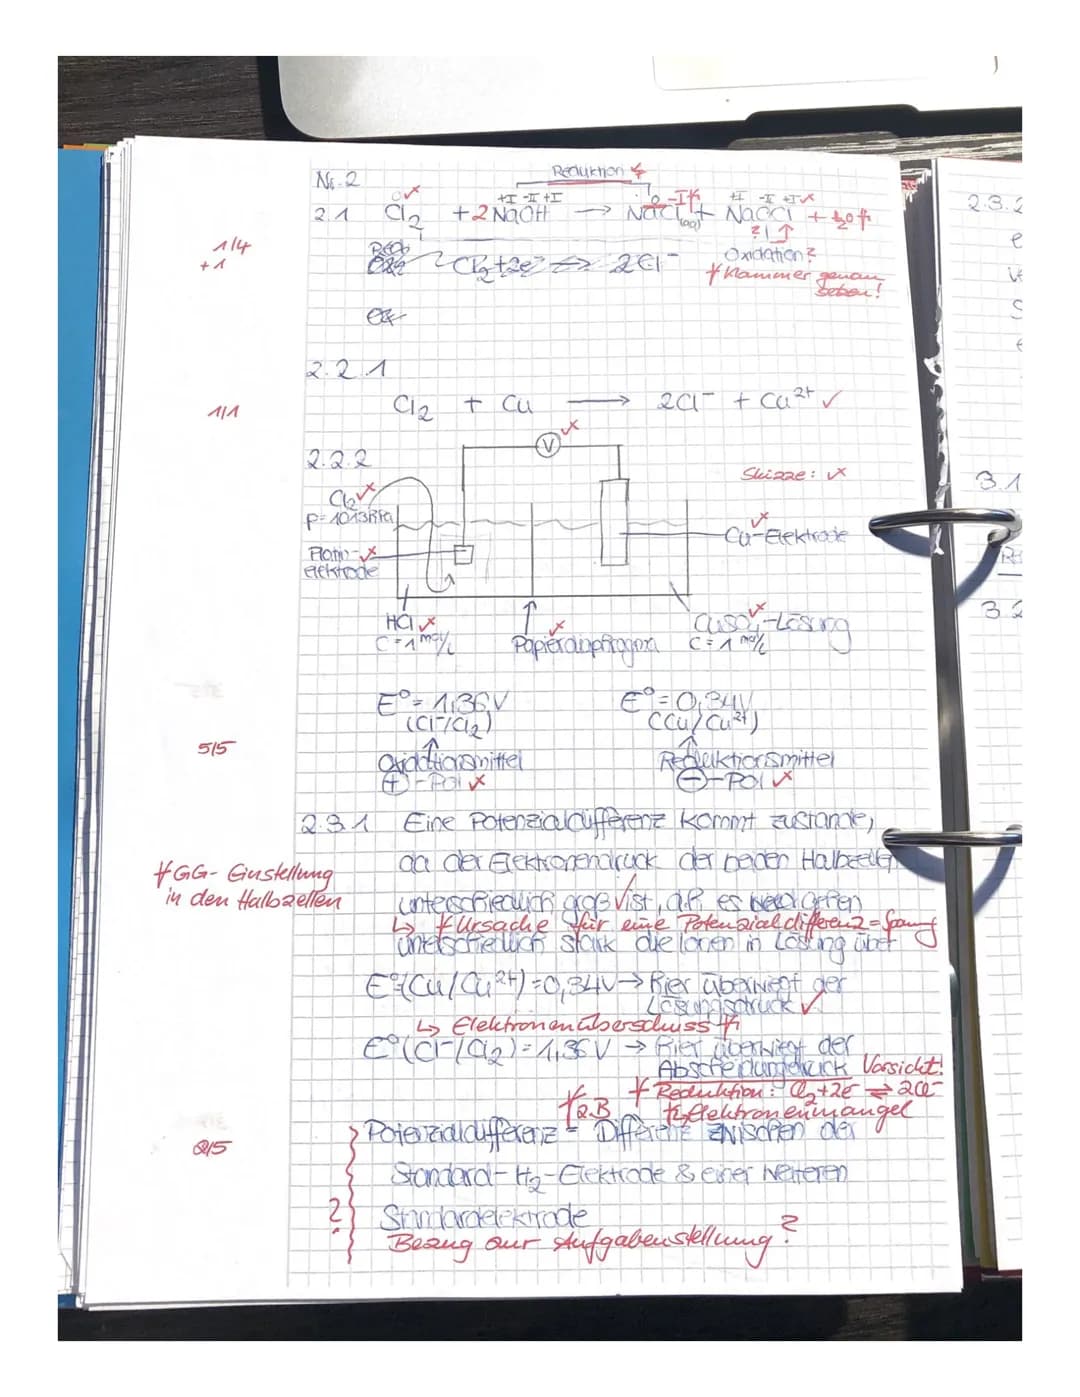 Nr. 2
Reduktion
0
+I -II +I
0 -I
+I -II +I
2.1 Cl₂ + 2 NaOH → NaCl + NaOCl +
(aq)
1/4
+1
Oxidation?
Cl₂ + 2e⁻ ⇌ 2Cl⁻
Klammer genau
setzen!
2.2.1
1/1
Cl₂ + Cu → 2Cl⁻ + Cu²⁺ ✓
V
2.2.2
Skizze: ✓
Cl₂
p = 1013 hPa
Cu-Elektrode
Platin-
elektrode
HCl
c = 1 mol/L
Papierdiaphragma
CuSO₄-Lösung
c = 1 mol/L
E⁰ = 1,36V
(Cl⁻/Cl₂)
E⁰ = 0,34V
(Cu/Cu²⁺)
5/5
Oxidationsmittel
⊕-Pol
Reduktionsmittel
⊖-Pol
2.3.1 Eine Potenzialdifferenz kommt zustande,
da der Elektronendruck der beiden Halbzellen
GG-Einstellung
in den Halbzellen
unterschiedlich groß ist, d.h. es gehen
↳ Ursache für eine Potenzialdifferenz = Spannung
unterschiedlich stark die Ionen in Lösung über
E⁰(Cu/Cu²⁺) = 0,34V → Hier überwiegt der
Lösungsdruck ✓
↳ Elektronenüberschuss
E⁰(Cl⁻/Cl₂) = 1,36V → Hier überwiegt der
Abscheidungsdruck Vorsicht!
Reduktion: Cl₂ + 2e⁻ ⇌ 2Cl⁻
Elektronenmangel
Potenzialdifferenz = Differenz zwischen der
2/5
Standard-H₂-Elektrode & einer weiteren
?
Standardelektrode
Bezug zur Aufgabenstellung?
2.3.2
3.1
3.2